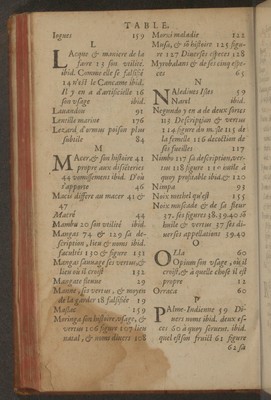 TABLE.
Iogues 159
L
LAcque & maniere de la
faire 13 son vtilité
ibid. Comme elle se falsifie
14 n'est le Cancame ibid.
Il y en a d'artificiele 16
son vsage ibid.
Lauandou 95
Lentille marine 176
Lezard d'aucus poison plus
subtile 84
M
MAcer, & son histoire 41
propre aux disenteries
44 vomissement ibid. D'où
s'apporte 46
Macis differe au macer 41 &
47
Macré 44
Mambu 20 son vtilité ibid.
Mangas 74 & 129 sa de-
scription, lieu & noms ibid.
facultés 130 & figure 151
Mangas sauuage ses vertus, &
lieu où il croist 132
Mangate sienne 29
Manne, ses vertus, & moyen
de la garder 18 falsifiée 19
Maslac 159
Moringa son histoire, vsage, &
vertus 106 figure 107 lieu
natal, & noms diuers 108
Morxi maladie 122
Musa, & so histoire 125 figu-
re 127 Diuerses especes 128
Myrobalans & de ses cinq espe-
ces 65
N
NAledines Isles 59
Narel ibid.
Negundo y en a de deux sortes
113 Description & vertus
114 figure du masle 115 de
la femelle 116 decoction de
ses fueilles 117
Nimbo 117 sa description, ver-
tus 118 figure 119 huile à
quoy profitable ibid. & 120
Nimpa 93
Noix methel qu'est 155
Noix muscade & de sa fleur
37. ses figures 38.39.40 so
huile & vertus 37 ses di-
uerses appellations 39.40
O
OLla 60
Opium son vsage, où il
croist, & à quelle chose il est
propre 12
Orraca 60
P
PAlme-Indienne 59. Di-
uers noms ibid. deux es-
ces 60 à quoy seruent. ibid.
quel est son fruict 61 figure
62 sa